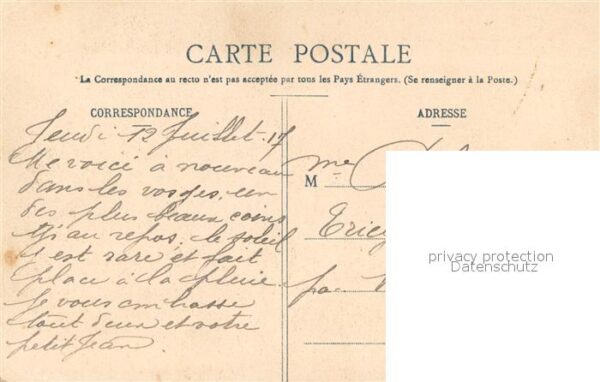 CARTE POSTALE
"La Correspondance au recto n'est pas acceptée par tous les Pays Étrangers. (Se renseigner à la Poste.)
CORRESPONDANCE
ADRESSE
Jeudi 12 Juillet 17
Me voici à nouveau
dans les vosges, un
des plus beaux coins
au repos, le soleil
y est rare et fait
place à la pluie
Je vous embrasse
tout deux et votre
petit Jean
M
me
par
privacy protection
Datenschutz